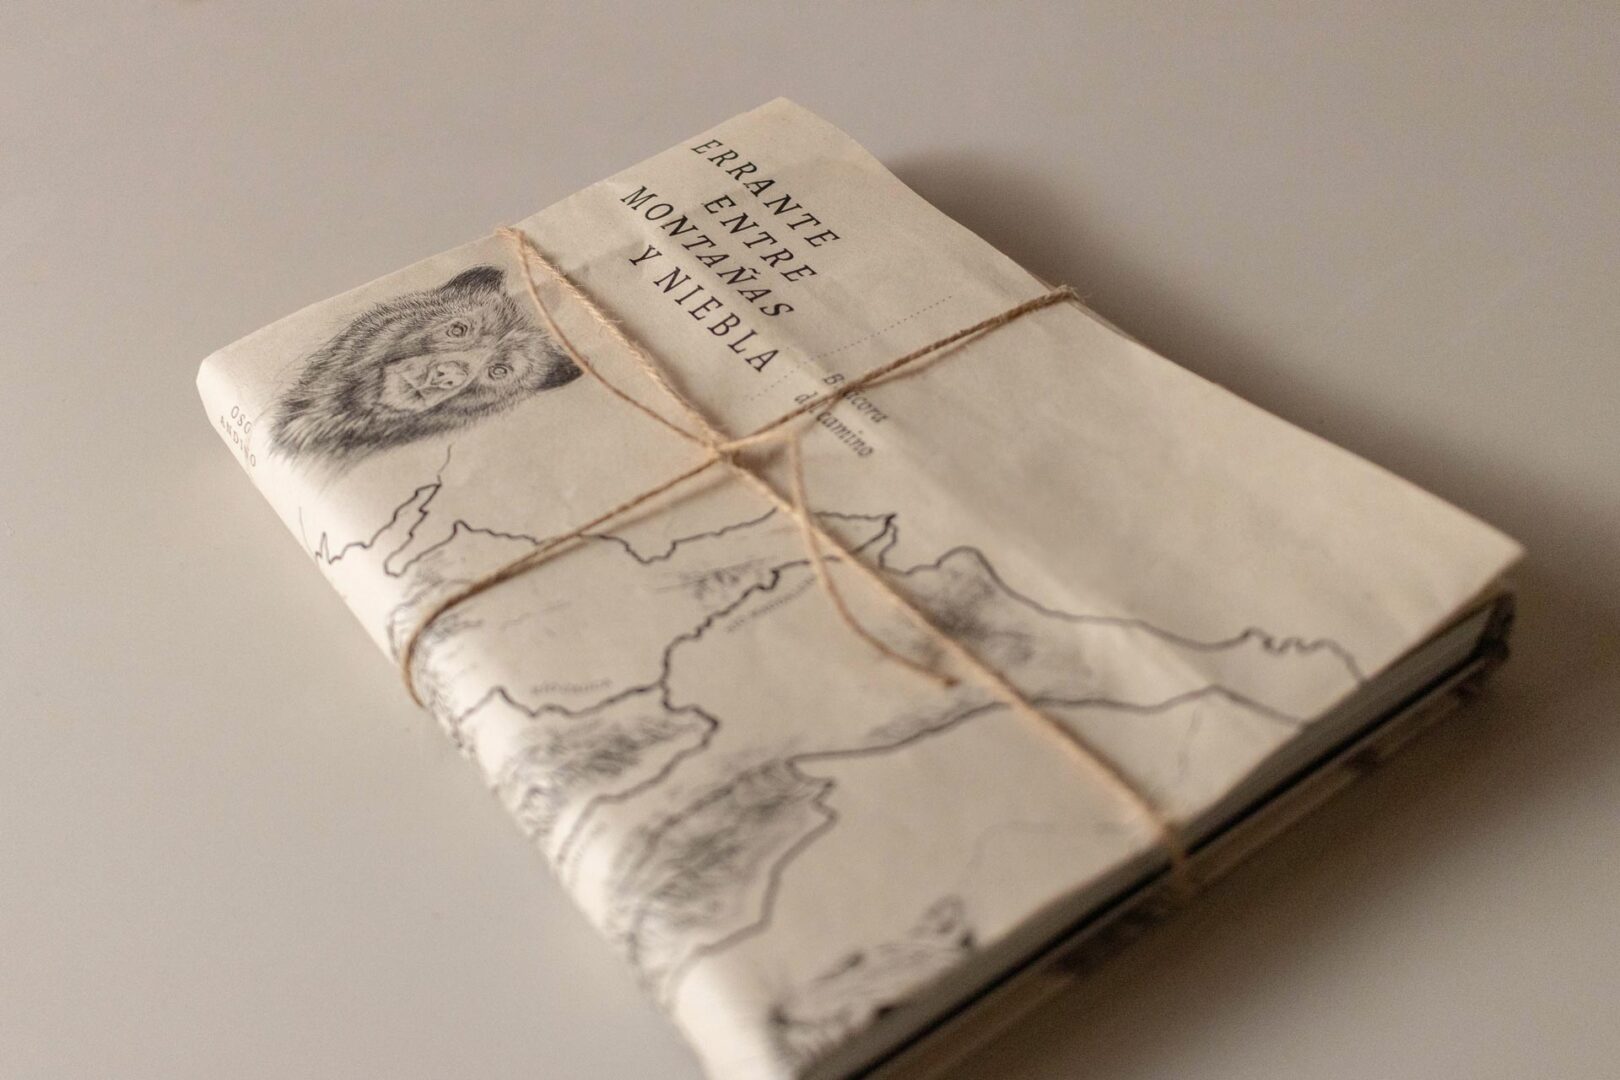 ERRANTE
ENTRE
MONTAÑAS
Y NIEBLA
del camino
OSO
ANDINO